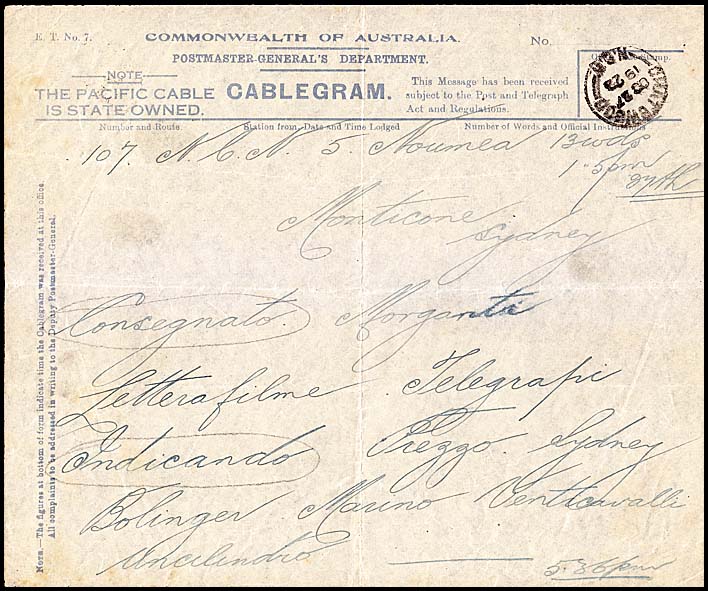 E. T. No. 7.
COMMONWEALTH OF AUSTRALIA.
No.
POSTMASTER-GENERAL'S DEPARTMENT.
NOTE
THE PACIFIC CABLE
IS STATE OWNED.
CABLEGRAM.
This Message has been received
subject to the Post and Telegraph
Act and Regulations.
Number and Route.
Station from, Date and Time Lodged
Number of Words and Official Instructions
107 N.C.N. 5 Noumea 13 wds
1.5 pm
27th
Monticone
Sydney
Consegnato Morganti
Letterafilme Telegrafi
Indicando Prezzo Sydney
Bolinger Marino Venticavalli
Uncilindro
5.36pm
NOTE.—The figures at bottom of form indicate time the Cablegram was received at this office.
All complaints to be addressed in writing to the Deputy Postmaster-General.